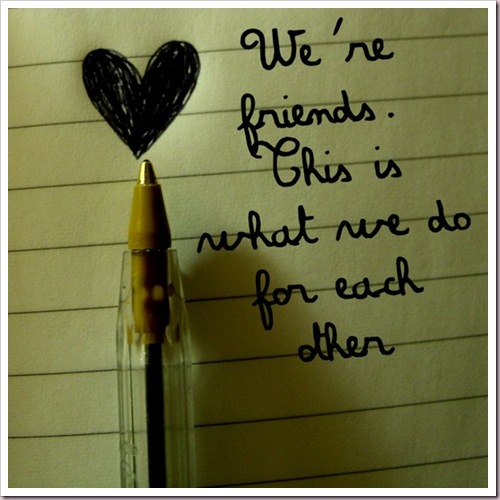 We're
friends.
This is
what we do
for each
other